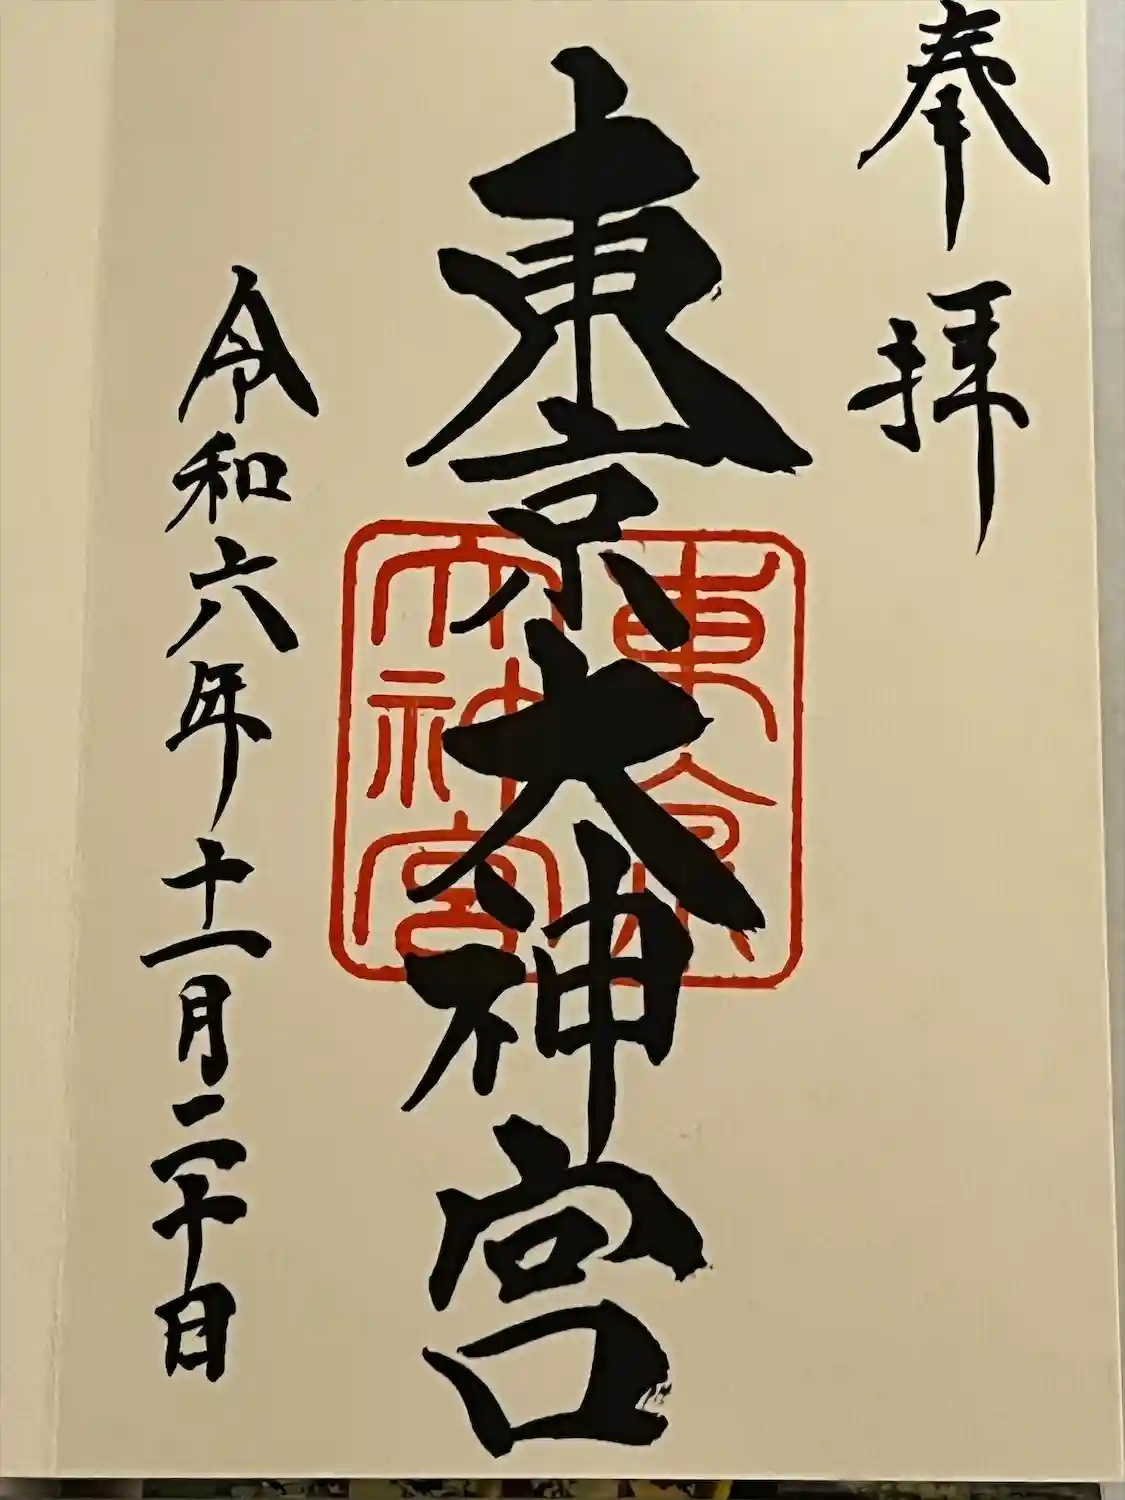 奉拝
東京大神宮
東京
大神宮
令和六年十一月二十日